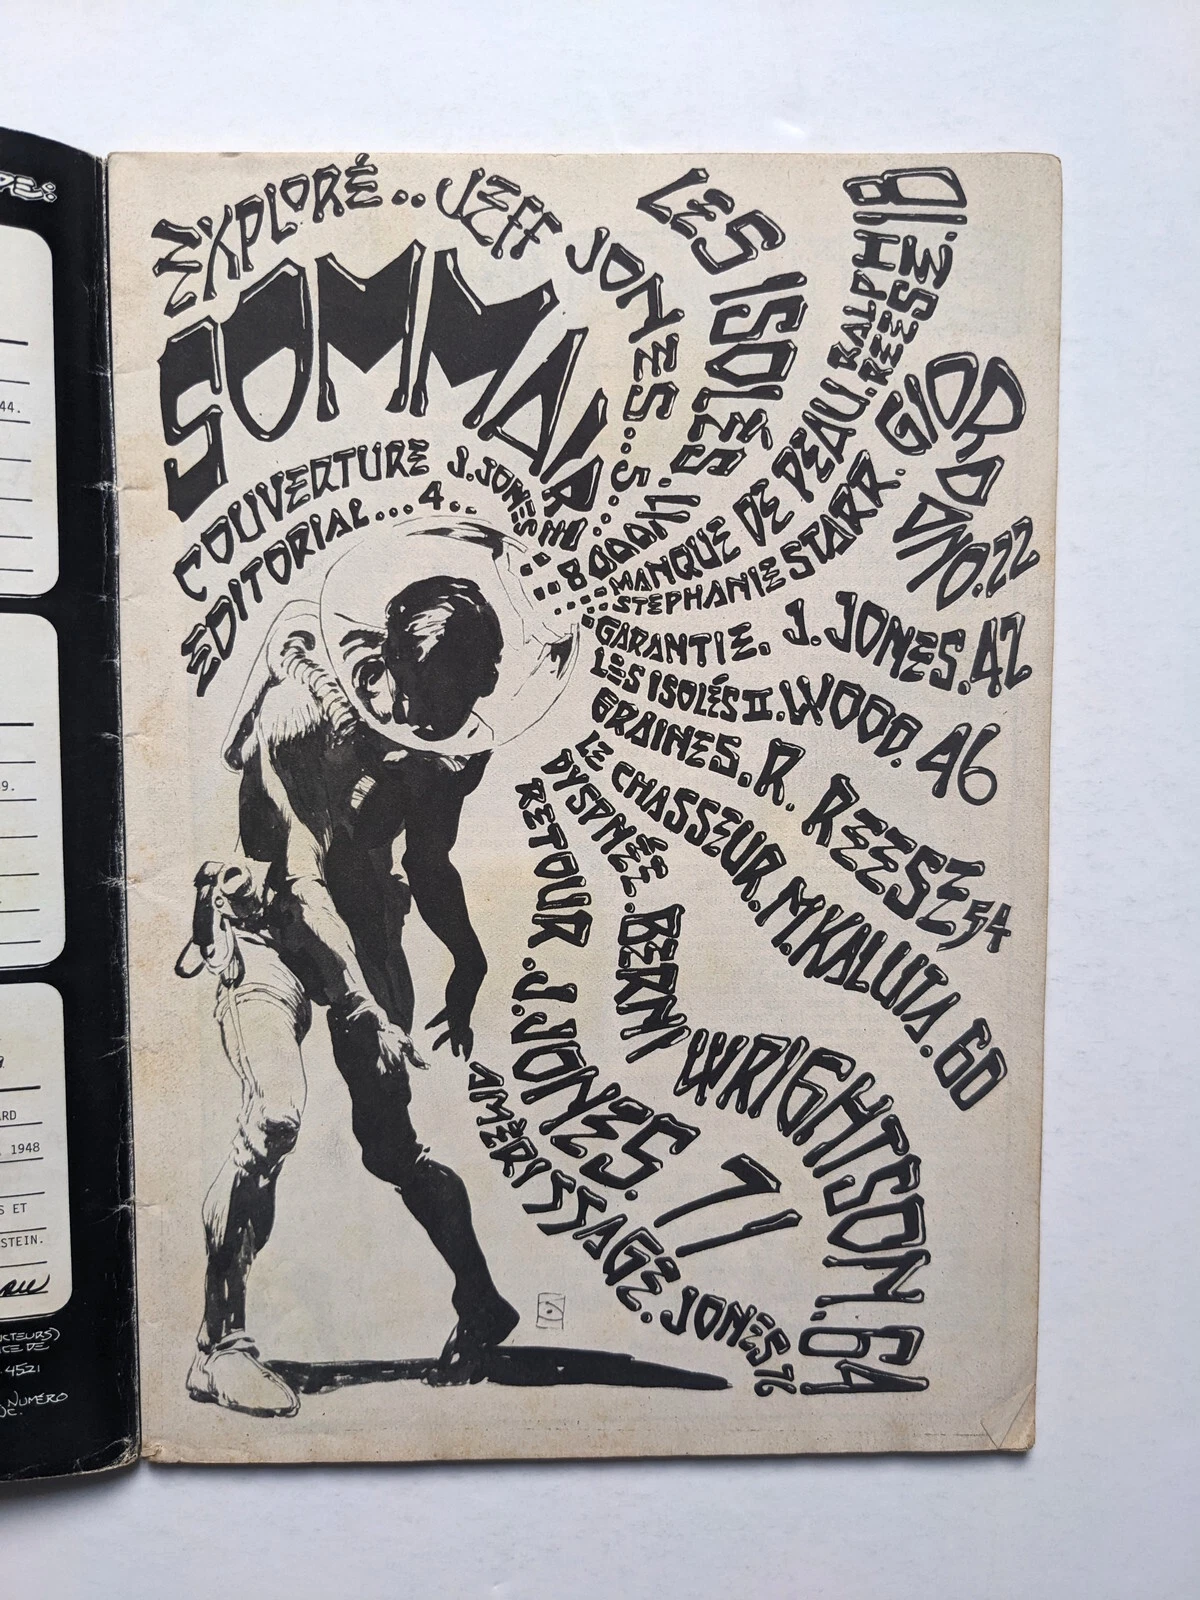 44.
9.
ARD
1948
S ET
STEIN.
CTEURS)
CE DE
4521
NUMÉRO
EXPLORÉ.. JEFF JONES...5...
SOMMAIRE
COUVERTURE J.JONES
EDITORIAL...4...
LES ISOLÉS. WOOD 8
MANQUE DE PEAU. RALPH REESE.18
STEPHANIE STARR. GIORDANO.22
GARANTIE. J. JONES.42
LES ISOLÉS II. WOOD. 46
GRAINES. R. REESE 54
LE CHASSEUR. M. KALUTA. 60
DYSPNÉE. BERNI WRIGHTSON.64
RETOUR. J.JONES. 71
AMÉRISSAGE. JONES 76